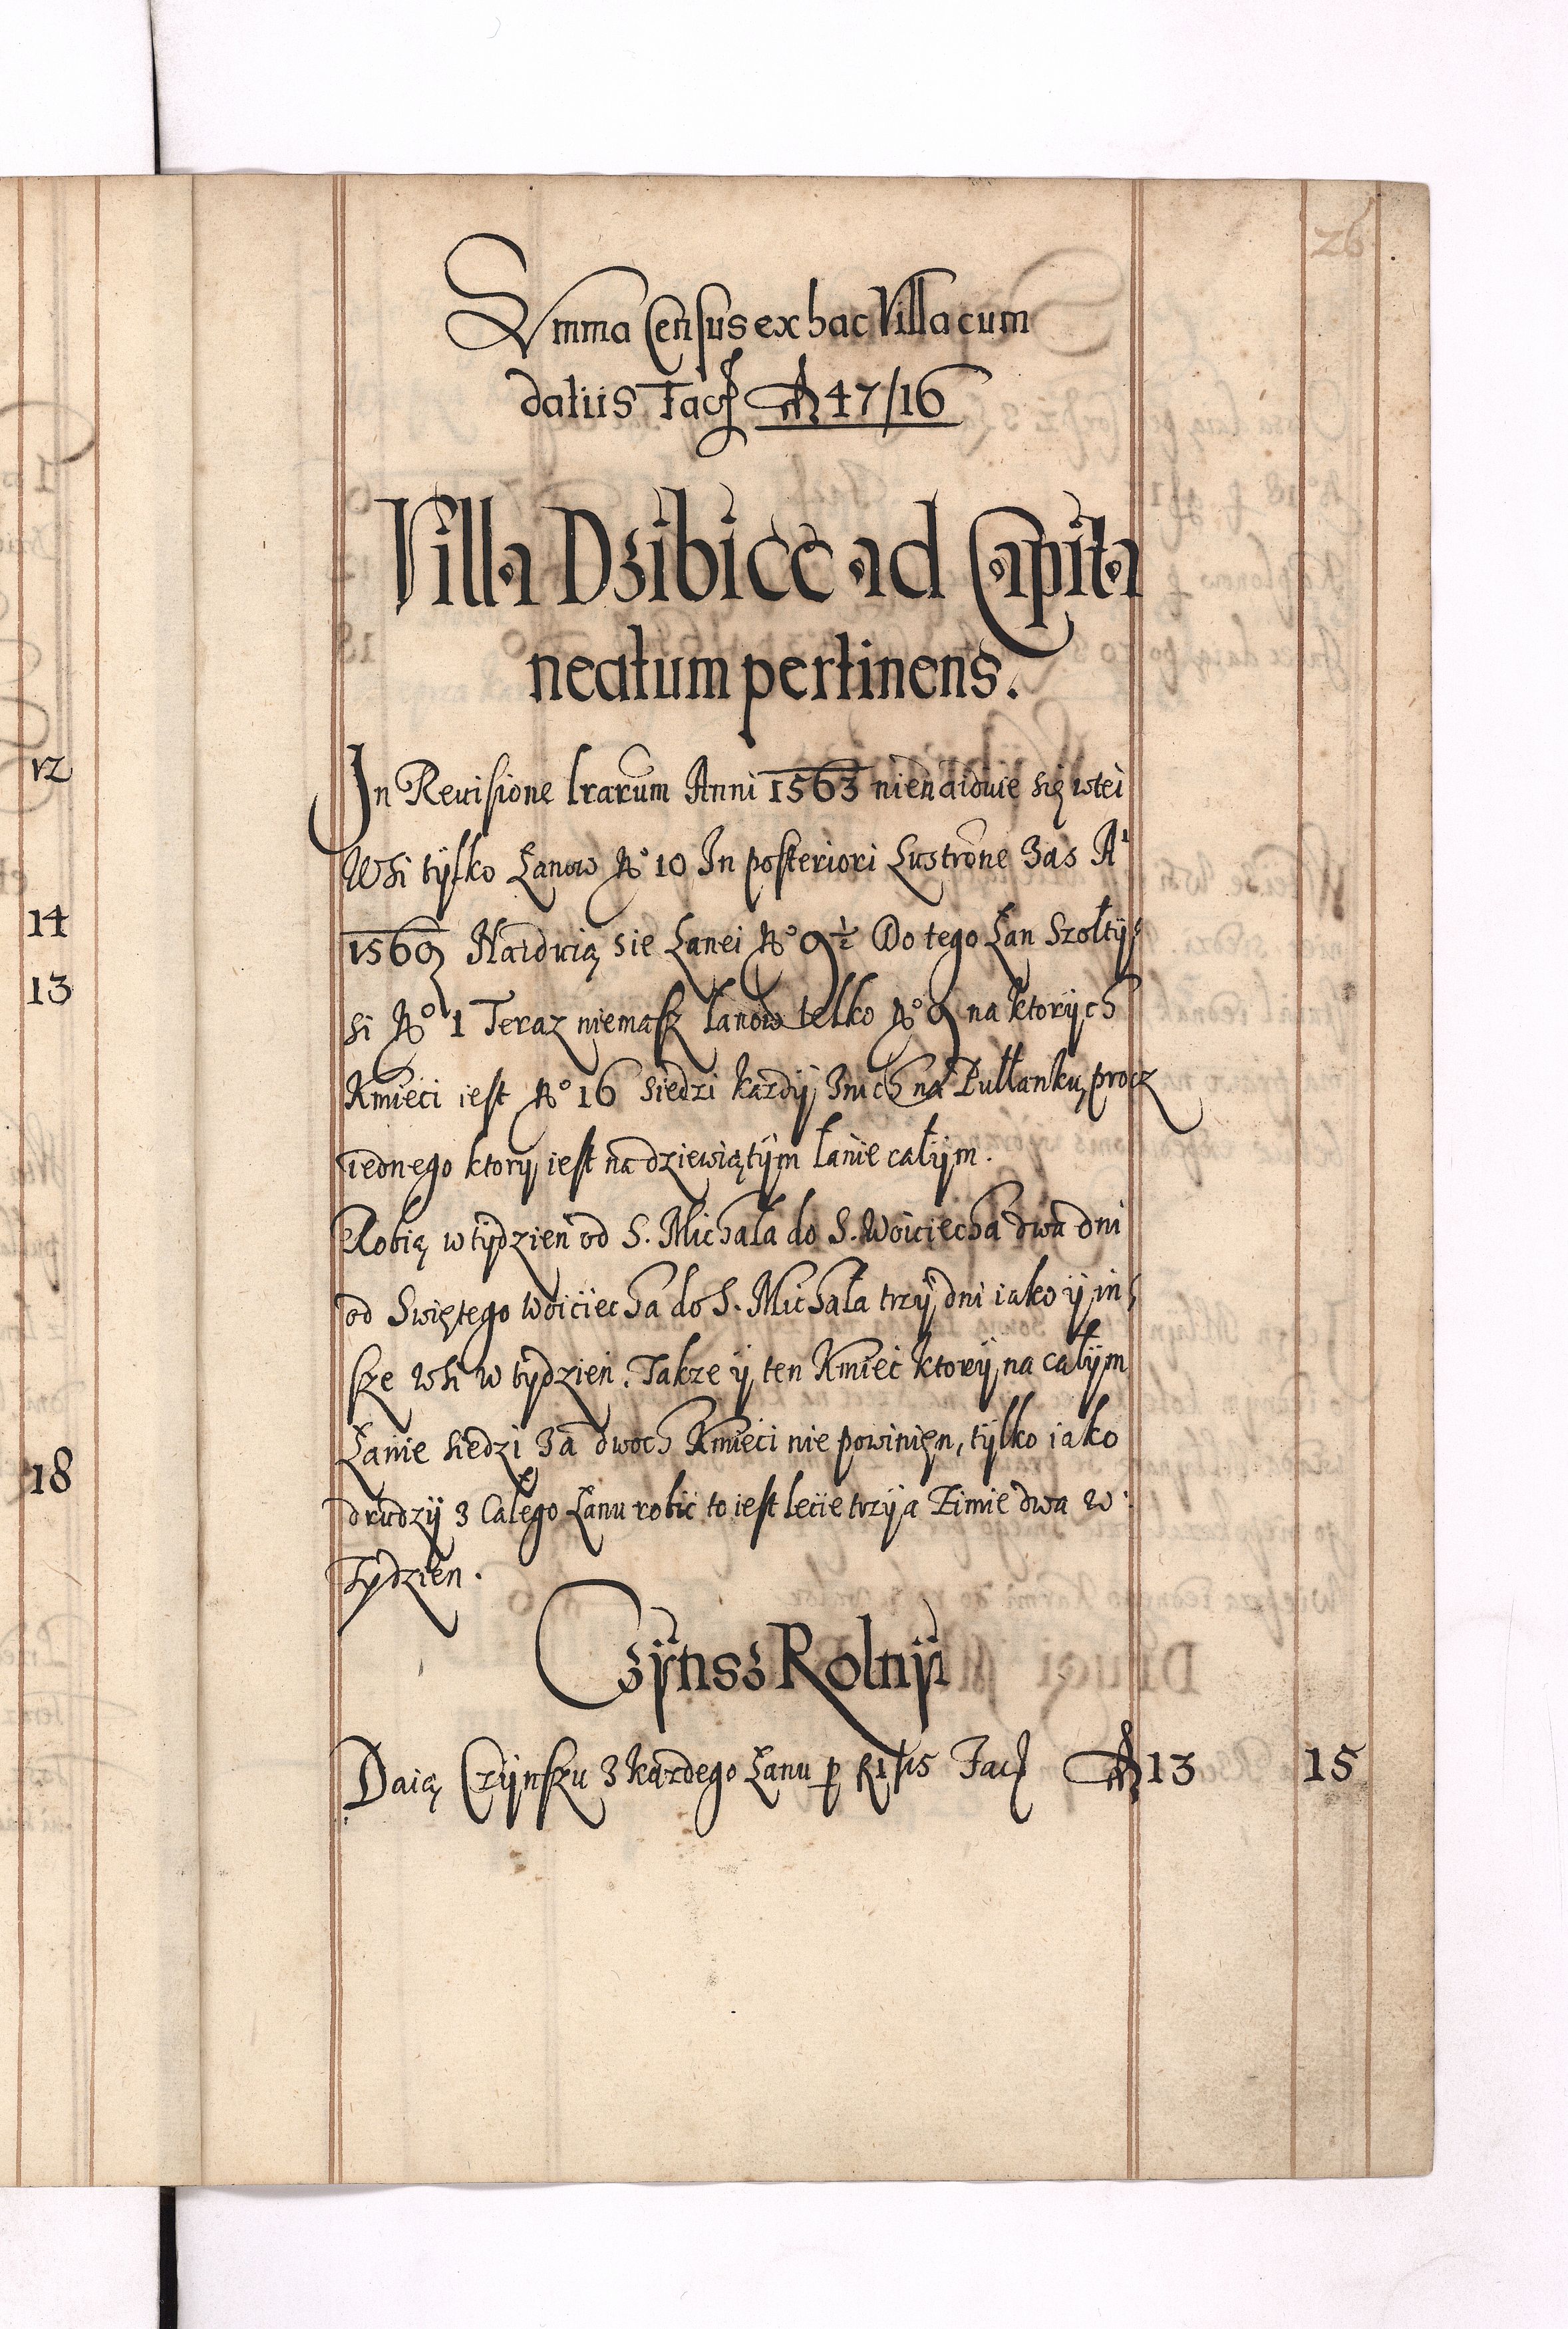 26
Summa Census ex hac Villa cum
datiis Fac[it] 47/16
Villa Dzibice ad Capita
neatum pertinens.
In Reuisione lrarum Anni 1563 nienaiduie się wtei
Wsi tÿlko Łanow No 10 In posteriori Lustrone Zas Ai
1569 Naiduią sie Łanei No 9½ Do tego Łan Szołtÿs
si No 1 Teraz niemasz łanow telko No 9 na ktorÿch
Kmieci iest No 16 siedzi kazdÿ Znich na Pułłanku, procz
iednego ktorÿ iest na dziewiątÿm łanie całÿm.
Robią w tÿdzien od S. Michała do S. Woiciecha dwa dni
od Swiętego Woiciecha do S. Michała trzÿ dni iako ÿ in,
sze wsi w tÿdzien. Takze ÿ ten Kmiec ktorÿ na całÿm
Łanie siedzi Za dwoch Kmieci nie powinien, tÿlko iako
drudzÿ z Całego Łanu robic to iest lecie trzÿ a Zimie dwa w
Tÿdzien.
Czÿnsz Rolnÿ
Daią Czÿnszu z kazdego Łanu p fl 1/15 Fac[it] 13 15
12
14
13
18